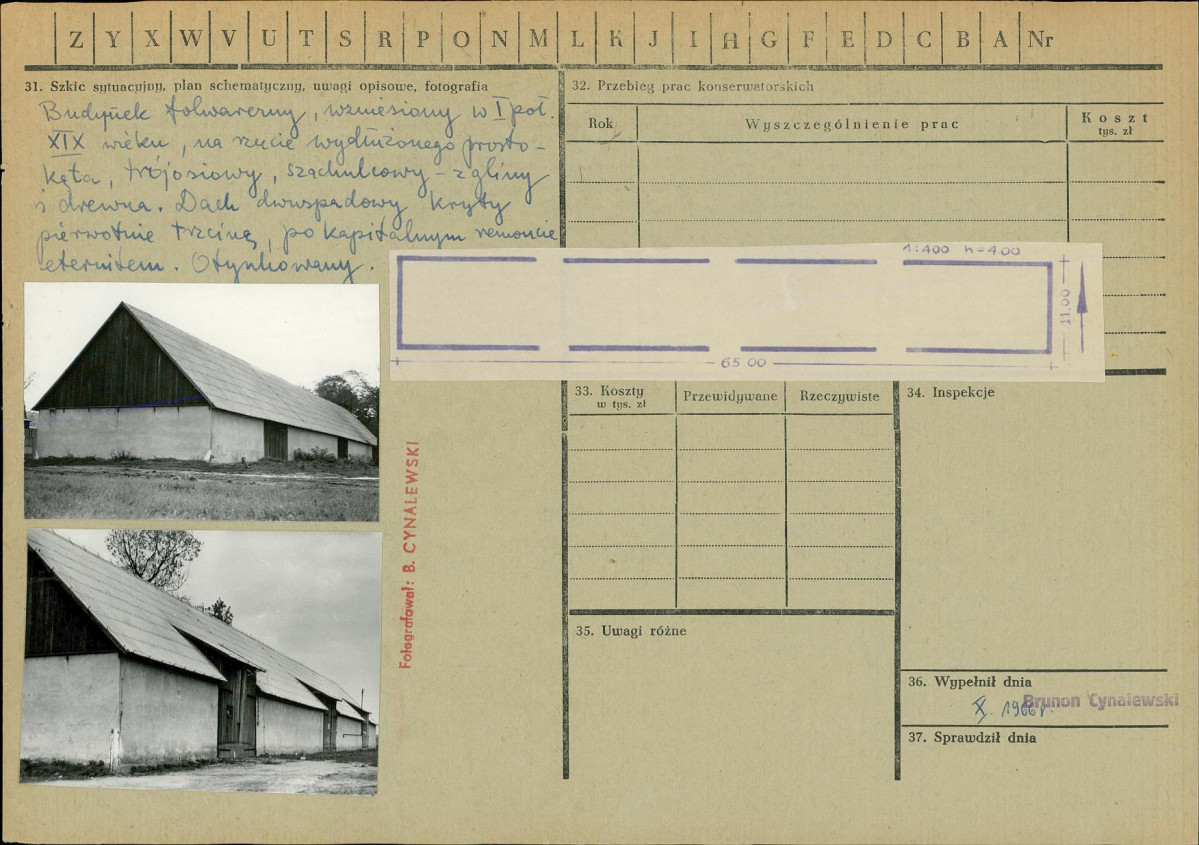 Z Y X W V U T S R P O N M L K J I H G F E D C B A Nr
31. Szkic sytuacyjny, plan schematyczny, uwagi opisowe, fotografia
Budynek folwarczny, wzniesiony w I poł.
XIX wieku, na rzucie wydłużonego prosto-
kąta, trójosiowy, szachulcowy - z gliny
i drewna. Dach dwuspadowy kryty
pierwotnie trzciną, po kapitalnym remoncie
eternitem. Otynkowany.
Fotografował: B. CYNALEWSKI
32. Przebieg prac konserwatorskich
Rok Wyszczególnienie prac Koszt
tys. zł
1:400 h=400
11.00
65.00
33. Koszty
w tys. zł
Przewidywane Rzeczywiste
34. Inspekcje
35. Uwagi różne
36. Wypełnił dnia
Brunon Cynalewski
X. 1966 r.
37. Sprawdził dnia